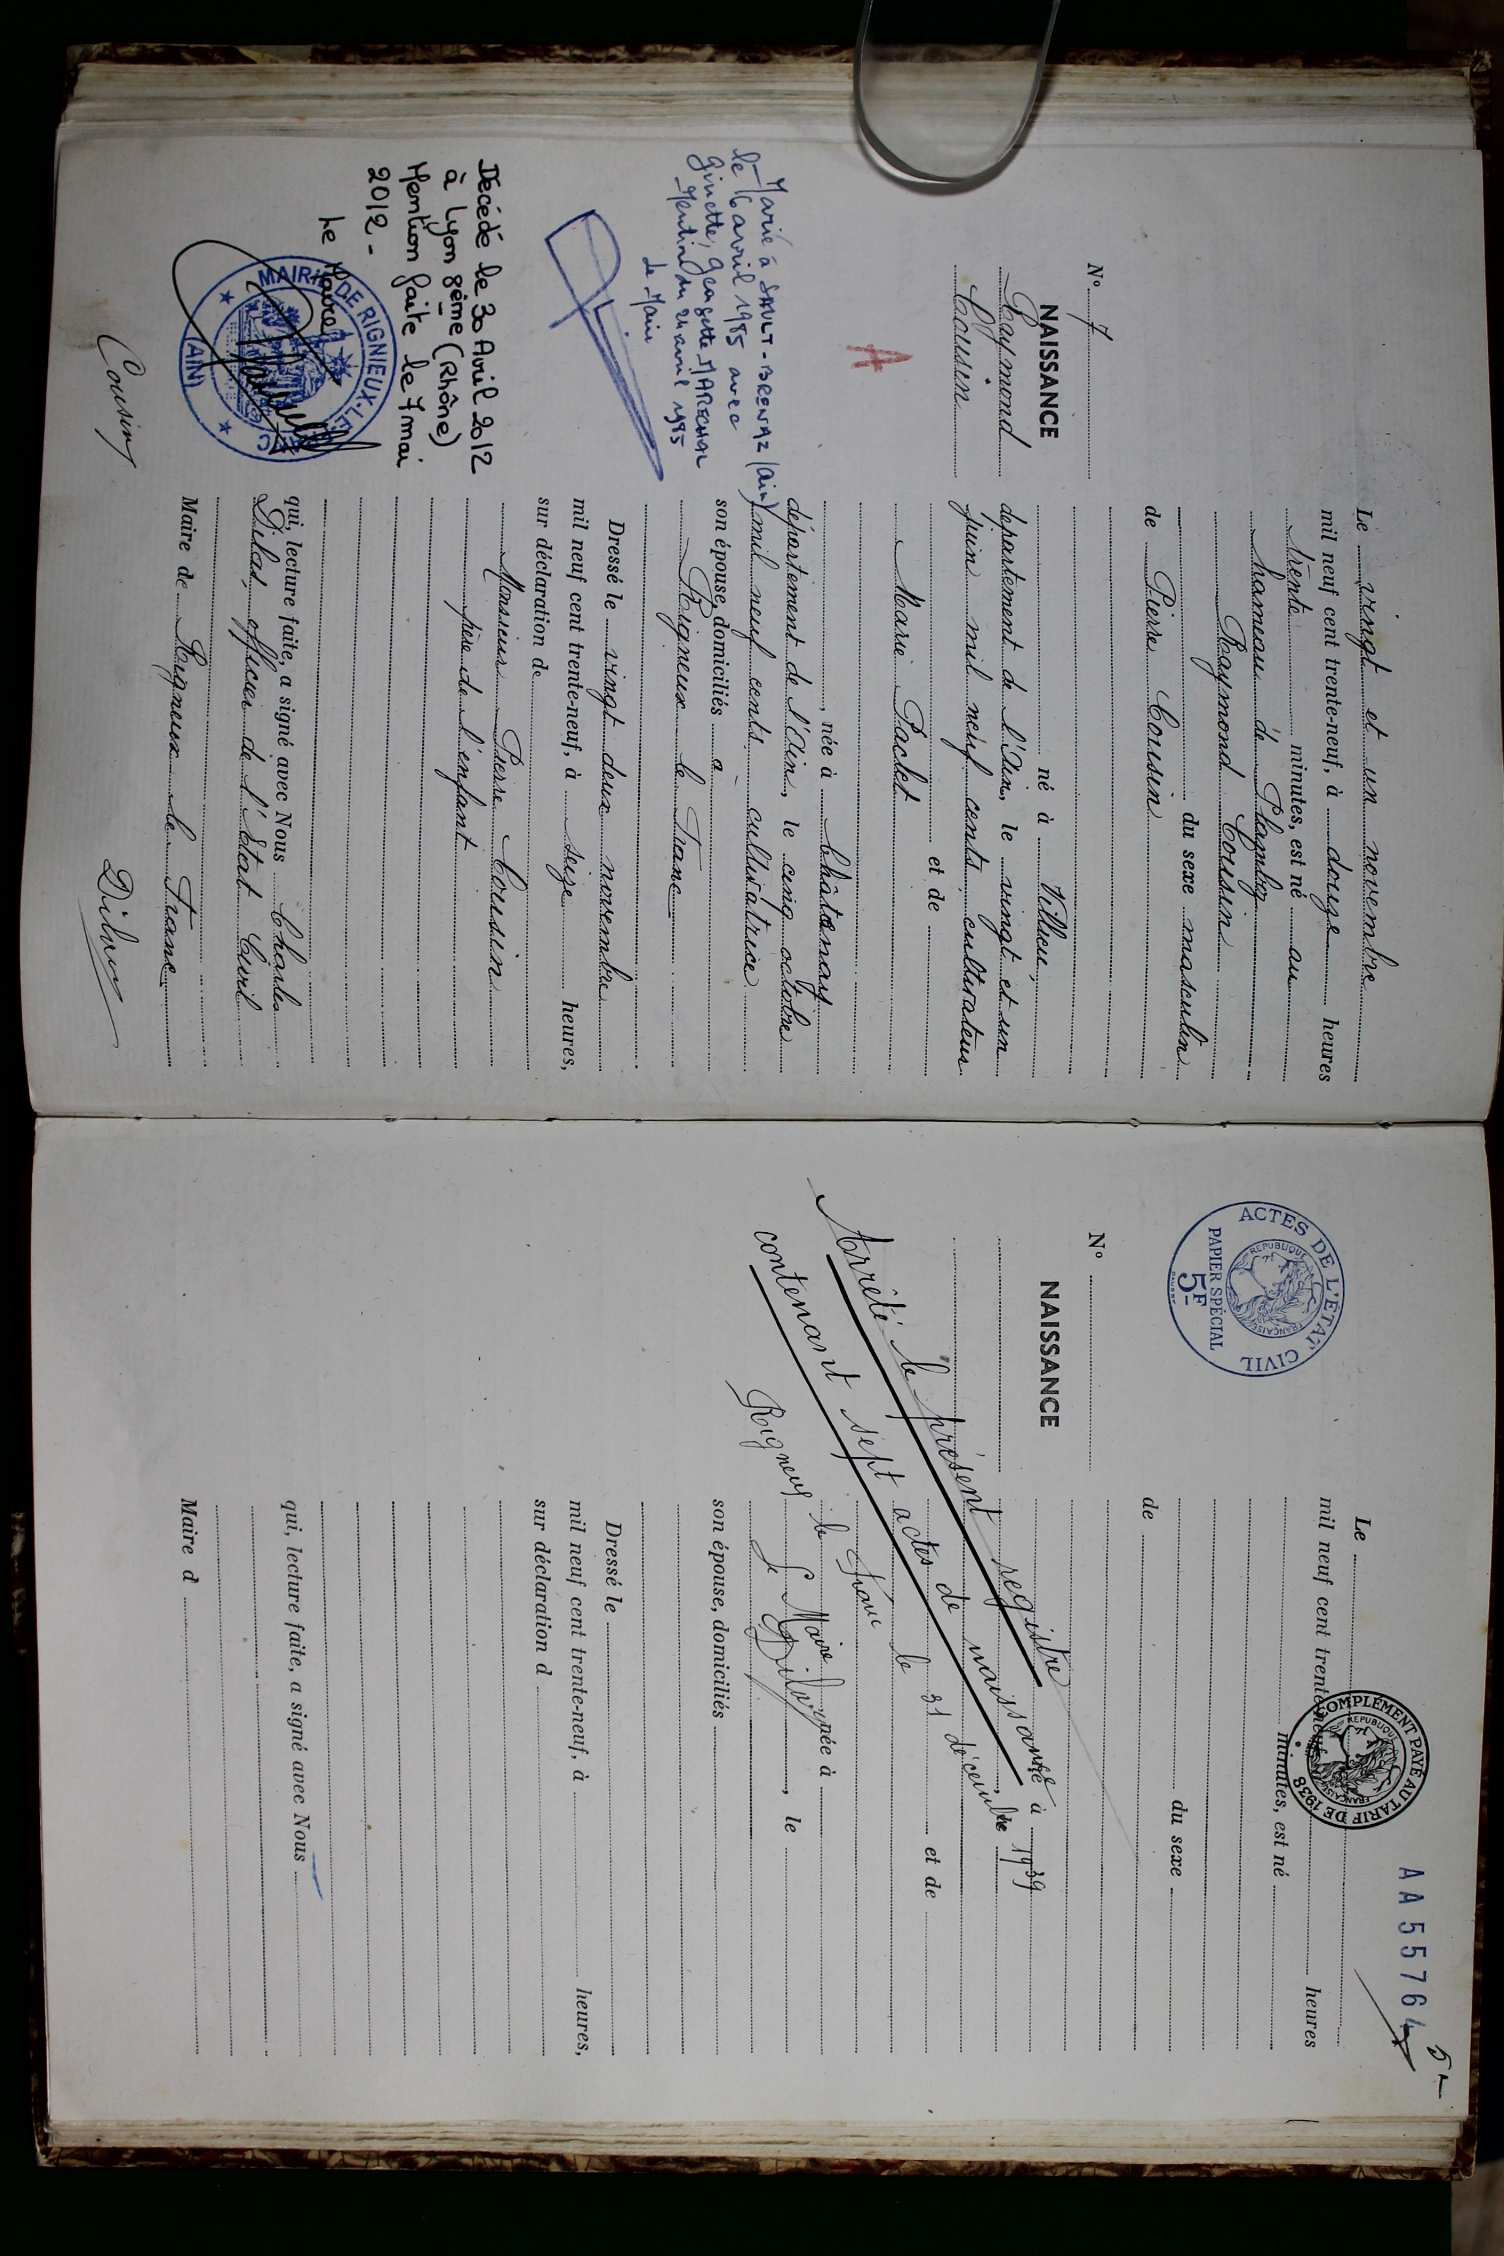 N° 7
NAISSANCE
Raymond
Cousin
A
Marié à SAULT-BRENAZ (Ain)
le 16 avril 1985 avec
Ginette, Georgette MARECHAL
Mention du 24 avril 1985
Le Maire
Décédé le 30 Avril 2012
à Lyon 8ème (Rhône)
Mention faite le 7 mai
2012 -
Le Maire
MAIRIE DE RIGNIEUX-LE-FRANC
(AIN)
Le vingt et un novembre
mil neuf cent trente-neuf, à douze heures
trente minutes, est né au
hameau de Plantoz
Raymond Cousin
du sexe masculin
de Pierre Cousin
né à Villieu,
département de l'Ain, le vingt et un
juin mil neuf cents cultivateur
et de
Marie Paclet
, née à Châtenay
département de l'Ain, le cinq octobre
mil neuf cents cultivatrice
son épouse, domiciliés à
Rigneux le Franc
Dressé le vingt deux novembre
mil neuf cent trente-neuf, à seize heures,
sur déclaration de
Monsieur Pierre Cousin
père de l'enfant
qui, lecture faite, a signé avec Nous Charles
Dilas, officier de l'Etat Civil
Maire de Rigneux le Franc
Cousin
Dilas
ACTES DE L'ÉTAT CIVIL
REPUBLIQUE FRANÇAISE
PAPIER SPÉCIAL
5F
COMPLÉMENT PAYÉ AU TARIF DE 1938
REPUBLIQUE FRANÇAISE
AA 55764
5-
N°
NAISSANCE
Le
mil neuf cent trente-neuf heures
minutes, est né
du sexe
de
né à
, le
et de
, née à
, le
son épouse, domiciliés
Dressé le
mil neuf cent trente-neuf, à heures,
sur déclaration d
qui, lecture faite, a signé avec Nous
Maire d
Arrêté le présent registre
contenant sept actes de naissance
Rigneux le Franc le 31 décembre 1939
Le Maire
Dilas